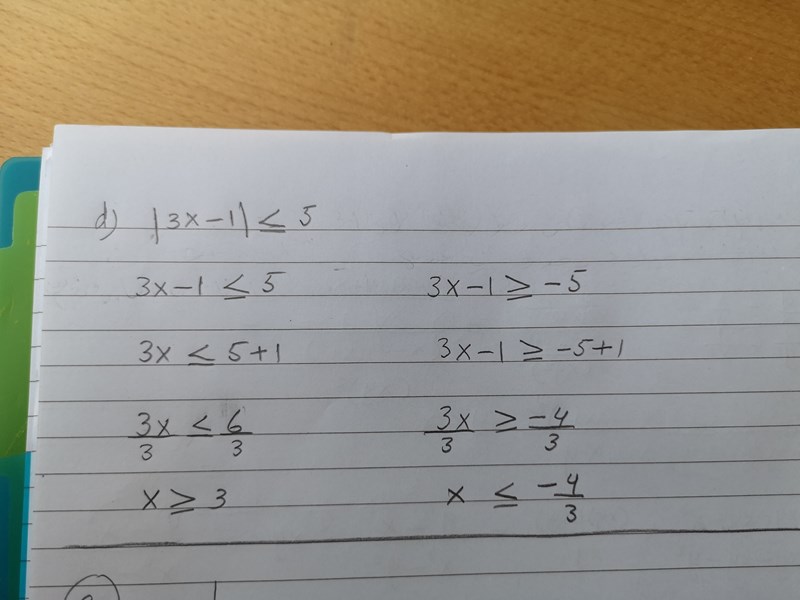 d) |3x-1| ≤ 5
3x-1 ≤ 5 3x-1 ≥ -5
3x ≤ 5+1 3x-1 ≥ -5+1
3x/3 ≤ 6/3 3x/3 ≥ -4/3
x ≥ 3 x ≤ -4/3